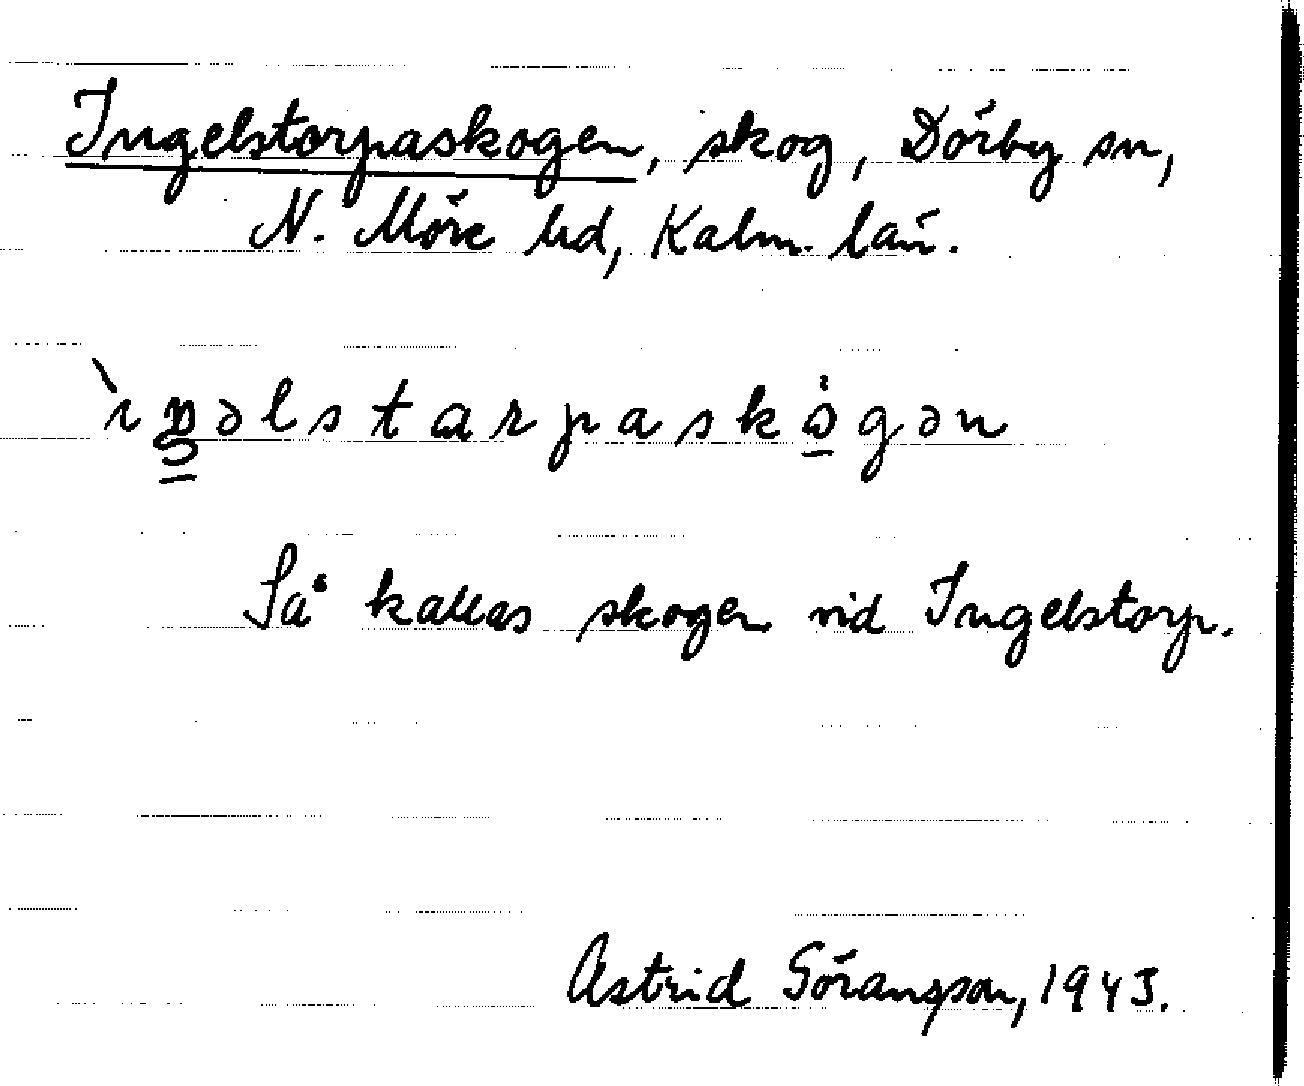 Ingelstorpaskogen, skog, Dörby sn,
N. Möre hd, Kalm. län.
ìŋəlstarpaskògən
Så kallas skogen vid Ingelstorp.
Astrid Göransson, 1943.